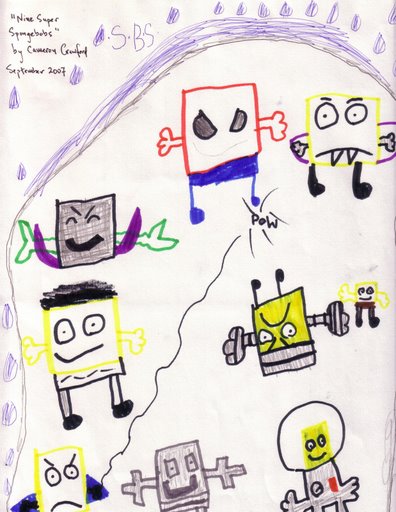 "Nine Super
Spongebobs"
by Cameron Crawford
September 2007
S.B.S
POW